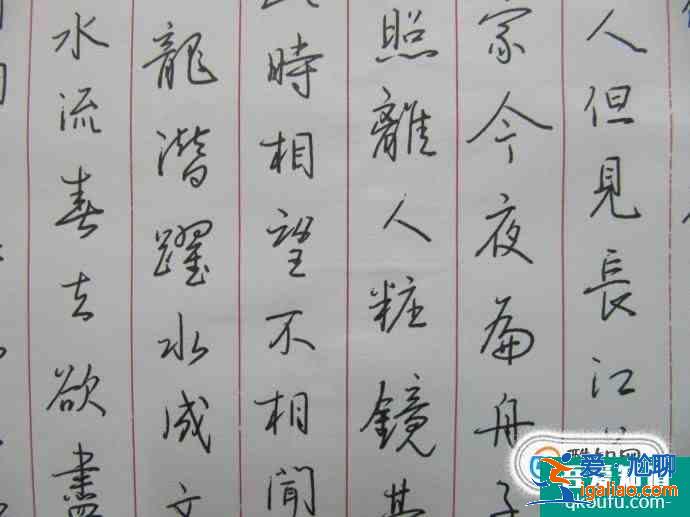 人但見長江
家今夜扁舟子
照離人粧鏡
時相望不相聞
龍潛躍水成文
水流春去欲盡
爱尴聊
igaliao.com
qk5ufu.com